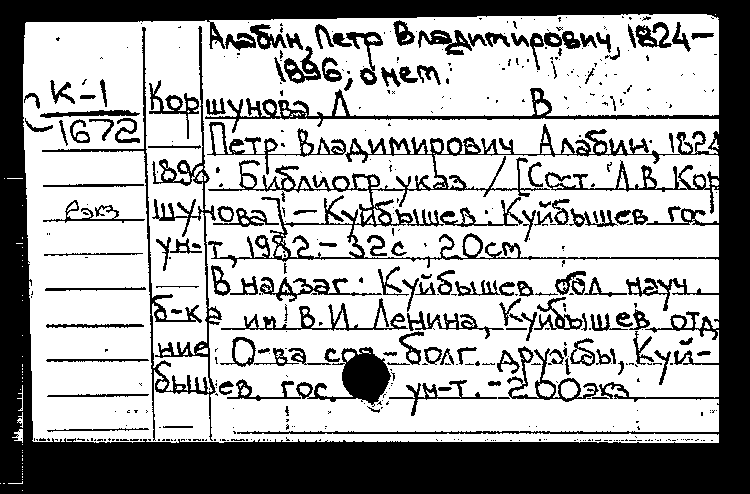 Алабин, Петр Владимирович, 1824—
1896, о нем.
К-1
1672
Коршунова, Л В
Петр Владимирович Алабин, 1824
1896: Библиогр. указ / [Сост. Л.В. Кор
шунова] — Куйбышев: Куйбышев. гос.
ун-т, 1982. — 32с.; 20см.
В надзаг.: Куйбышев. обл. науч.
б-ка им. В.И. Ленина, Куйбышев. отд-
ние О-ва сов.-болг. дружбы, Куй-
бышев. гос. ун-т. — 200экз.